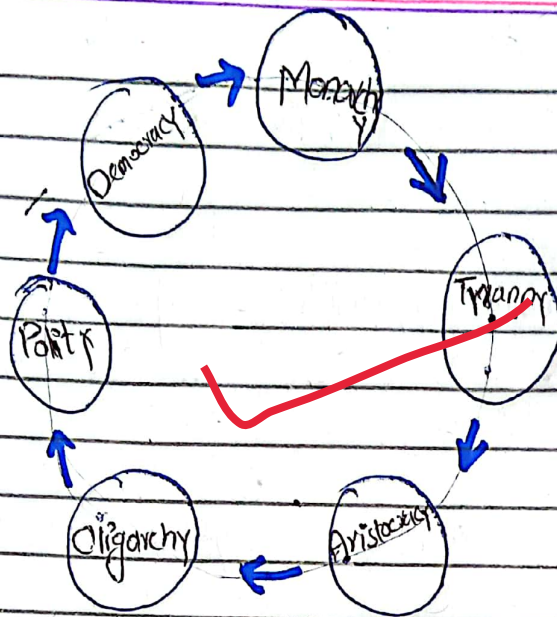 Monarch
y
Tyranny
Aristocracy
Oligarchy
Polity
Democracy